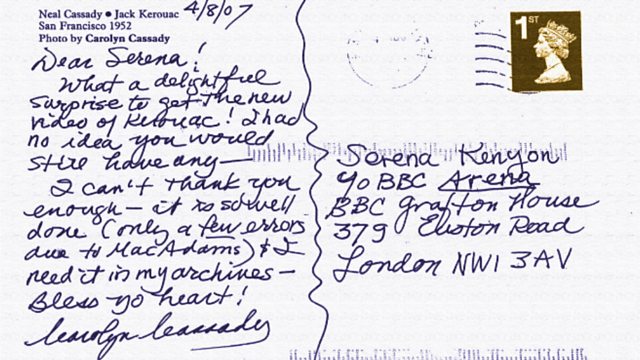 Neal Cassady • Jack Kerouac
San Francisco 1952
Photo by Carolyn Cassady
4/8/07
Dear Serena!
What a delightful
surprise to get the new
video of Kerouac! I had
no idea you would
still have any—
I can't thank you
enough— it is so well
done (only a few errors
due to MacAdams) & I
need it in my archives—
Bless yo heart!
Carolyn Cassady
1ST
Serena Kenyon
c/o BBC Arena
BBC Grafton House
379 Euston Road
London NW1 3AV